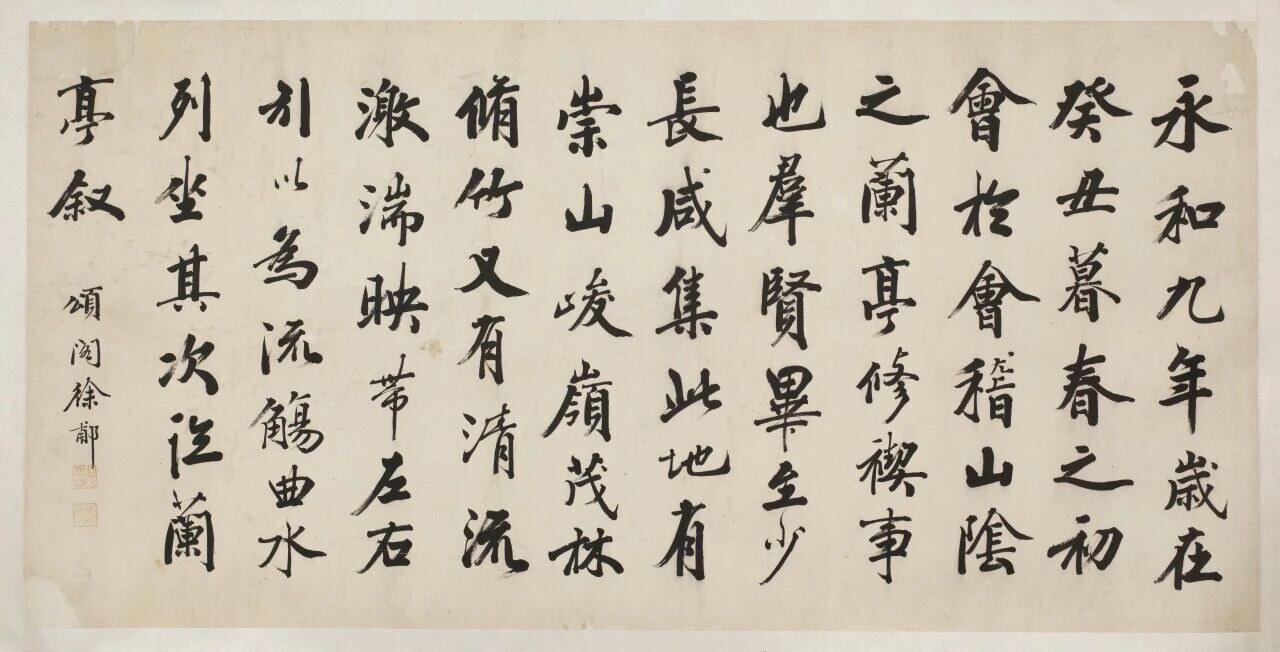 永和九年歲在
癸丑暮春之初
會於會稽山陰
之蘭亭修禊事
也羣賢畢至少
長咸集此地有
崇山峻嶺茂林
脩竹又有清流
激湍映帶左右
引以為流觴曲水
列坐其次託蘭
亭叙
頌閣徐郙